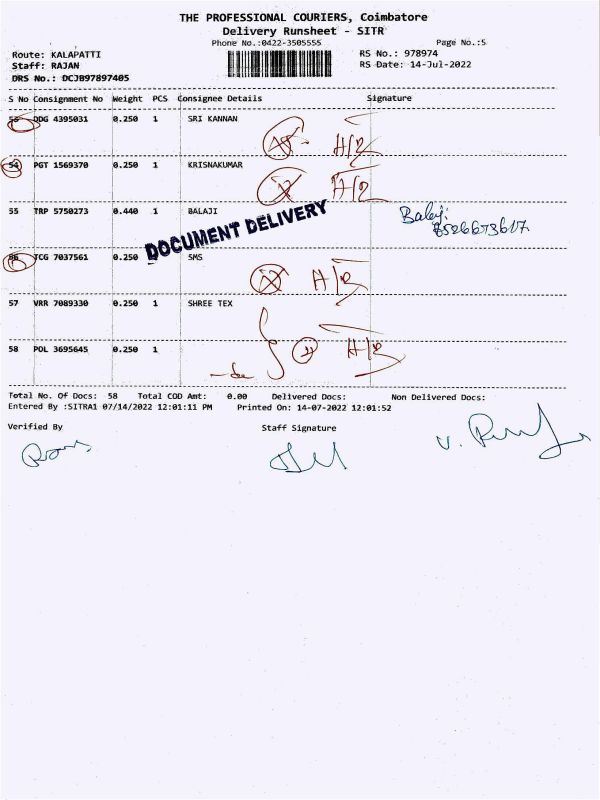 THE PROFESSIONAL COURIERS, Coimbatore
Delivery Runsheet - SITR
Phone No.:0422-3505555
Page No.:5
Route: KALAPATTI
RS No.: 978974
Staff: RAJAN
RS Date: 14-Jul-2022
DRS No.: DCJB97897405
S No Consignment No Weight PCS Consignee Details Signature
53 DDG 4395031 0.250 1 SRI KANNAN
H/R
54 PGT 1569370 0.250 1 KRISNAKUMAR
H/R
55 TRP 5750273 0.440 1 BALAJI
Balaji
DOCUMENT DELIVERY
56 TCG 7037561 0.250 SMS
H/R
57 VRR 7089330 0.250 1 SHREE TEX
58 POL 3695645 0.250 1
H/R
Total No. Of Docs: 58 Total COD Amt: 0.00 Delivered Docs: Non Delivered Docs:
Entered By :SITRA1 07/14/2022 12:01:11 PM Printed On: 14-07-2022 12:01:52
Verified By Staff Signature